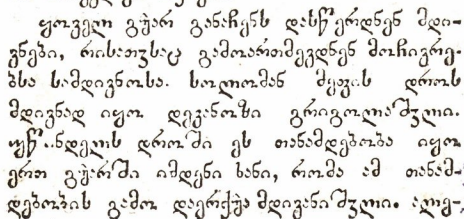 ყოველ გვარ განაჩენს დასწერდნენ მდი-
ვნები, რისათვსაც გამოართმევდნენ მოჩივრე-
ბსა სამდივნოსა. სოლომან მეფის დროს
მდივნად იყო დეკანოზი გრიგოლაშვლი.
დროში ეს თანამდებობა იყო
ერთ გვარში იმდენი ხანი, რომა ამ თანამ-
დებობის გამო დაერქვა მდივანიშვლი.